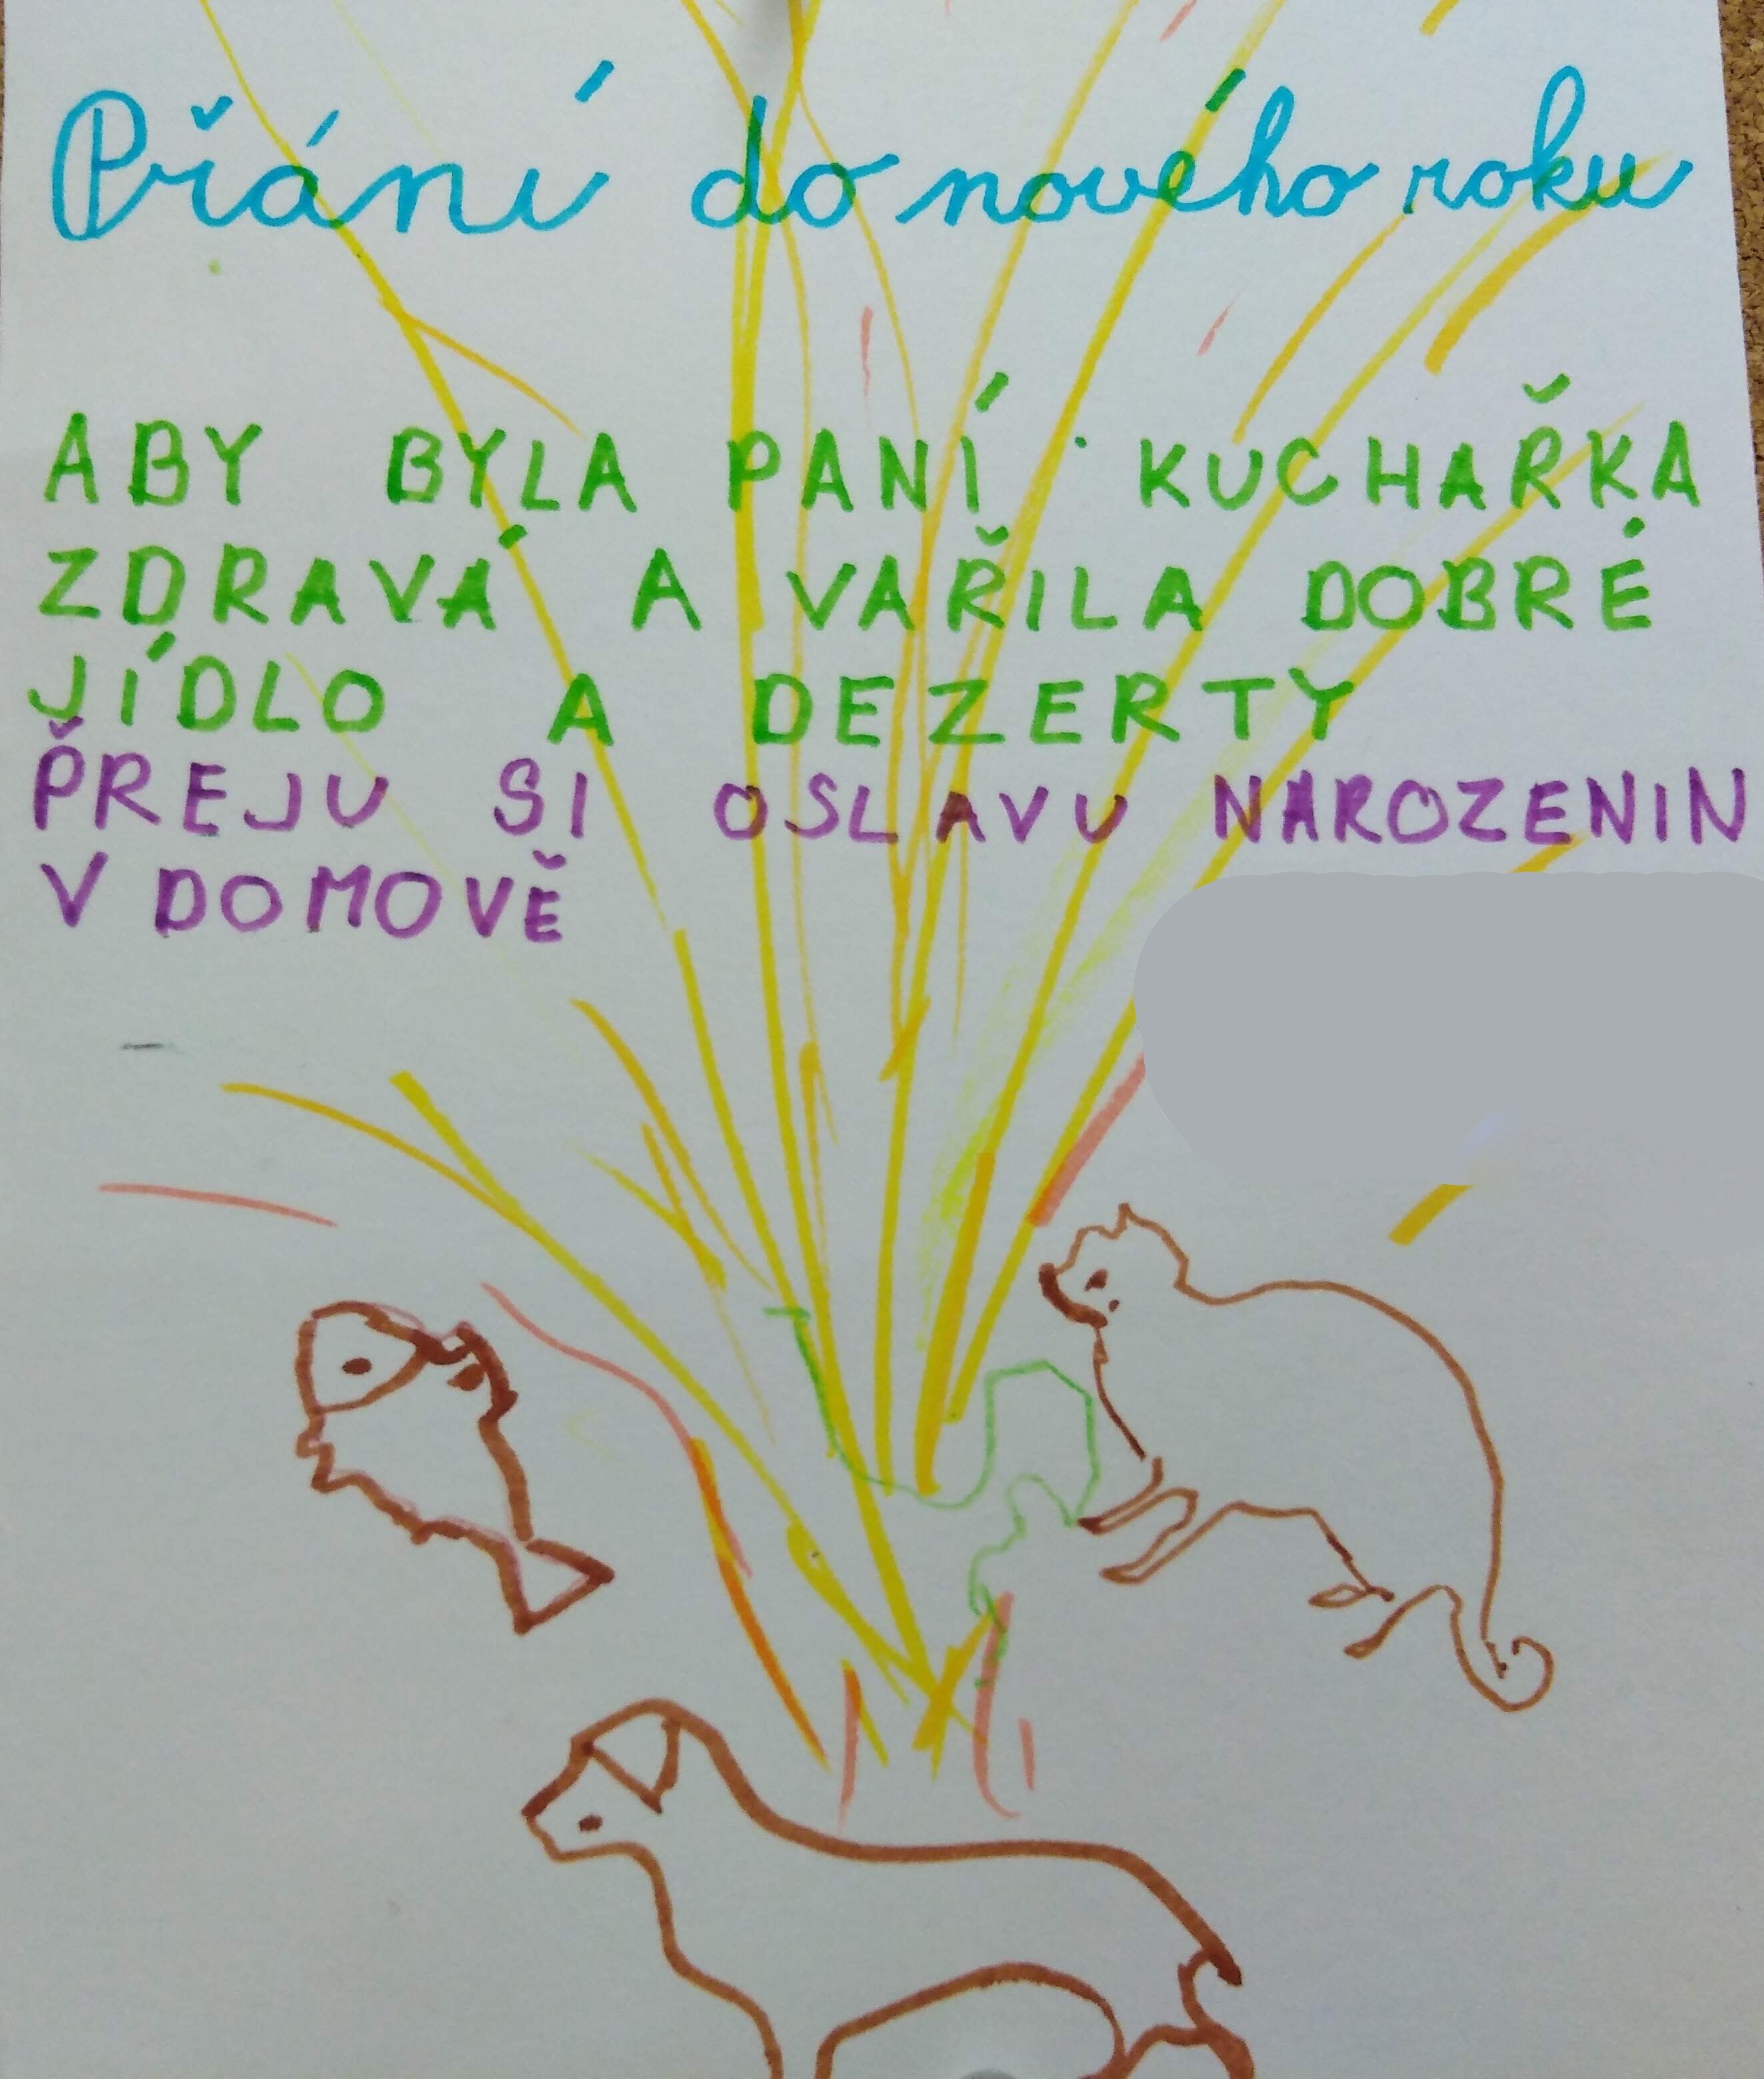 Přání do nového roku
ABY BYLA PANÍ KUCHAŘKA
ZDRAVÁ A VAŘILA DOBRÉ
JÍDLO A DEZERTY
PŘEJU SI OSLAVU NAROZENIN
V DOMOVĚ